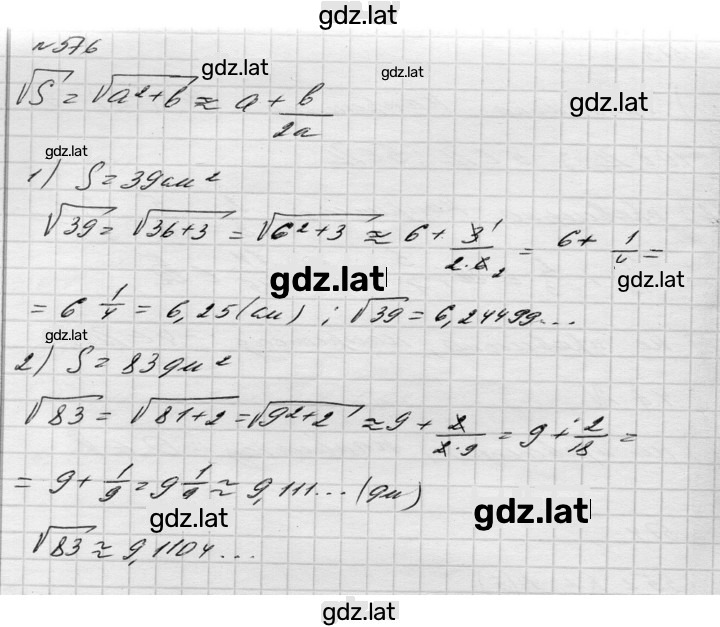 gdz.lat
№576
gdz.lat gdz.lat
√S = √(a²+b) ≈ a + b/2a
gdz.lat
gdz.lat
1) S = 39 см²
√39 = √(36+3) = √(6²+3) ≈ 6 + 3 1/2·6 2 = 6 + 1/4 =
gdz.lat gdz.lat
= 6 1/4 = 6,25 (см) ; √39 = 6,24499...
gdz.lat
2) S = 83 дм²
√83 = √(81+2) = √(9²+2) ≈ 9 + 2/2·9 = 9 + 2/18 =
= 9 + 1/9 = 9 1/9 ≈ 9,111... (дм)
gdz.lat gdz.lat
√83 ≈ 9,1104...
gdz.lat